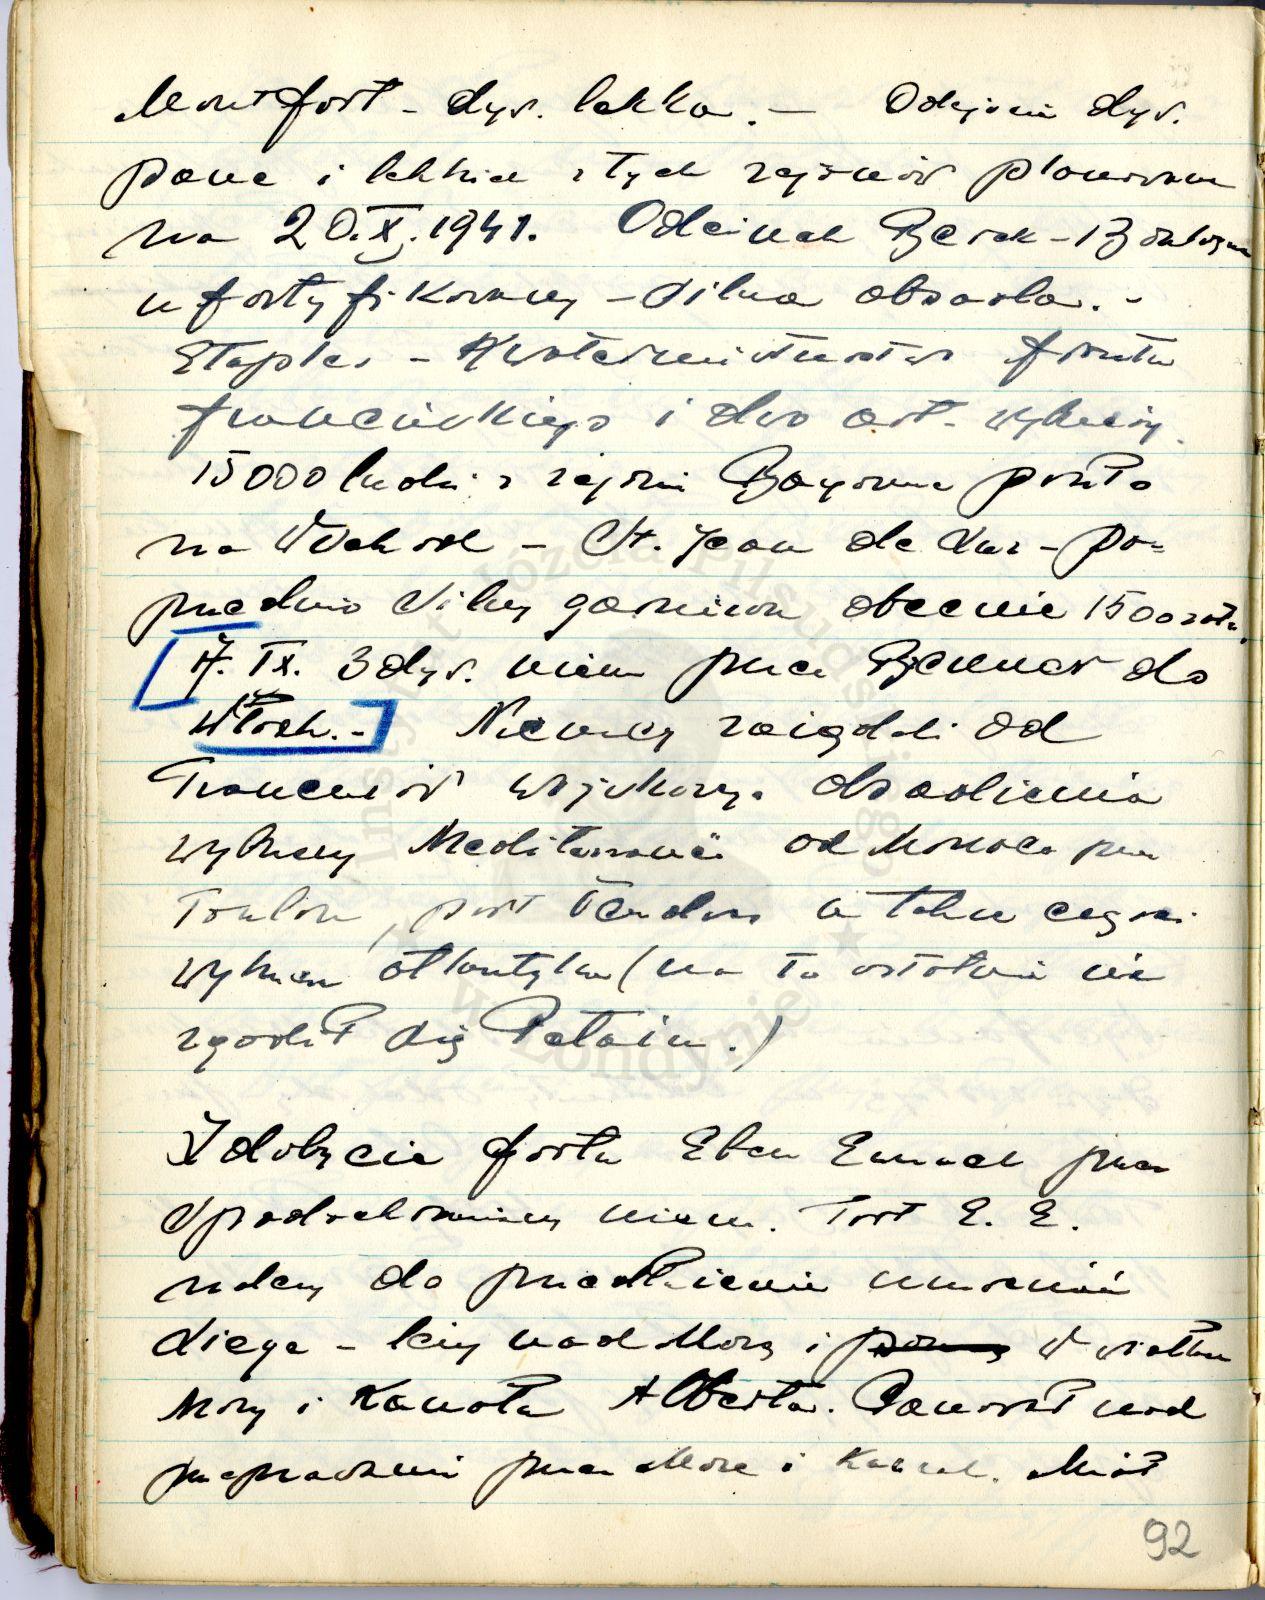 Montfort - dyw. lekka. - Odejście dyw.
panc i lekkich z tych rejonów planowane
na 20.X.1941. Odcinek Berck - Boulogne
ufortyfikowany - silna obsada. -
Etaples - Kwatermistrzostwo frontu
francuskiego i dwo art. wybrzeży.
15000 ludzi z rejonu Bayonne poszło
na Wschód - St. Jean de Luz - po=
przednio silny garnizon obecnie 1500 żołn.
[7. IX. 3 dyw. niem przez Brenner do
Włoch. -] Niemcy zażądali od
Francuzów wojskowego obsadzenia
wybrzeży Mediterranée od Monaco przez
Toulon, port Vendres a także części
wybrzeża atlantyku (na to ostatnie nie
zgodził się Petain.)
Zdobycie fortu Eben Emael przez
spadochroniarzy niem. Fort E. E.
należy do przedłużenia umocnień
Liege - leży nad Mozą i w widłach
Mozy i Kanału Alberta. Panował nad
przeprawami przez Mozę i Kanał. Miał
92
Instytut Józefa Piłsudskiego
w Londynie